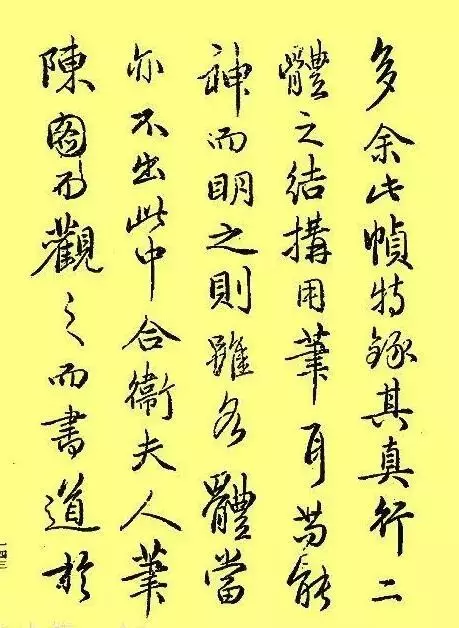 多余此幀特錄其真行二
體之結搆用筆耳苟能
神而明之則雖各體當
亦不出此中合衞夫人筆
陳圖而觀之而書道於
一四三